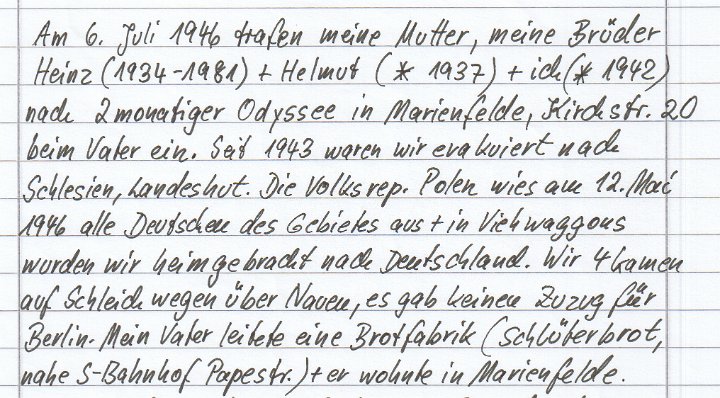 Am 6. Juli 1946 trafen meine Mutter, meine Brüder
Heinz (1934-1981) + Helmut (* 1937) + ich (* 1942)
nach 2monatiger Odyssee in Marienfelde, Kirchstr. 20
beim Vater ein. Seit 1943 waren wir evakuiert nach
Schlesien, Landeshut. Die Volksrep. Polen wies am 12. Mai
1946 alle Deutschen des Gebietes aus + in Viehwaggons
wurden wir heimgebracht nach Deutschland. Wir 4 kamen
auf Schleichwegen über Nauen, es gab keinen Zuzug für
Berlin. Mein Vater leitete eine Brotfabrik (Schlüterbrot,
nahe S-Bahnhof Papestr.) + er wohnte in Marienfelde.